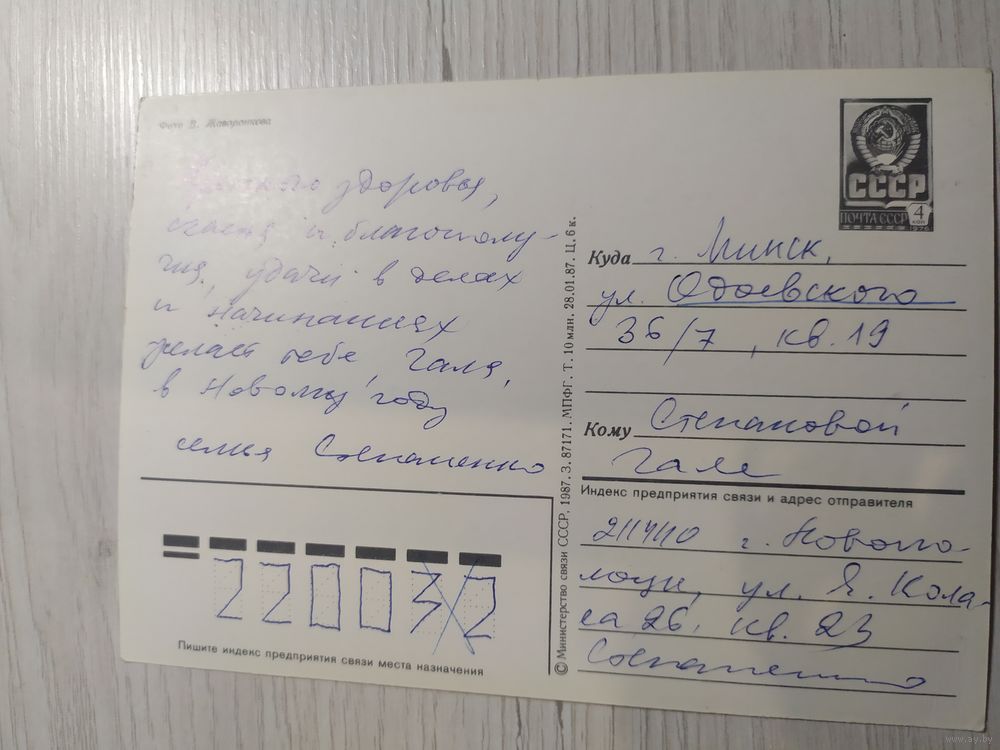 Фото В. Жаворонкова
Крепкого здоровья,
счастья и благополу-
чия, удачи в делах
и начинаниях
желает тебе, Галя,
в Новому году
семья Степаненко
СССР
ПОЧТА СССР
4
КОП
1976
Куда г. Минск,
ул. Одоевского
36/7, кв. 19
Кому Степановой
Гале
Индекс предприятия связи и адрес отправителя
211410 г. Новопо-
лоцк, ул. Я. Кола-
са 26, кв. 23
Степаненко
© Министерство связи СССР, 1987. З. 87171. МПФГ. Т. 10 млн. 28.01.87. Ц. 6 к.
220032
Пишите индекс предприятия связи места назначения
www.ay.by